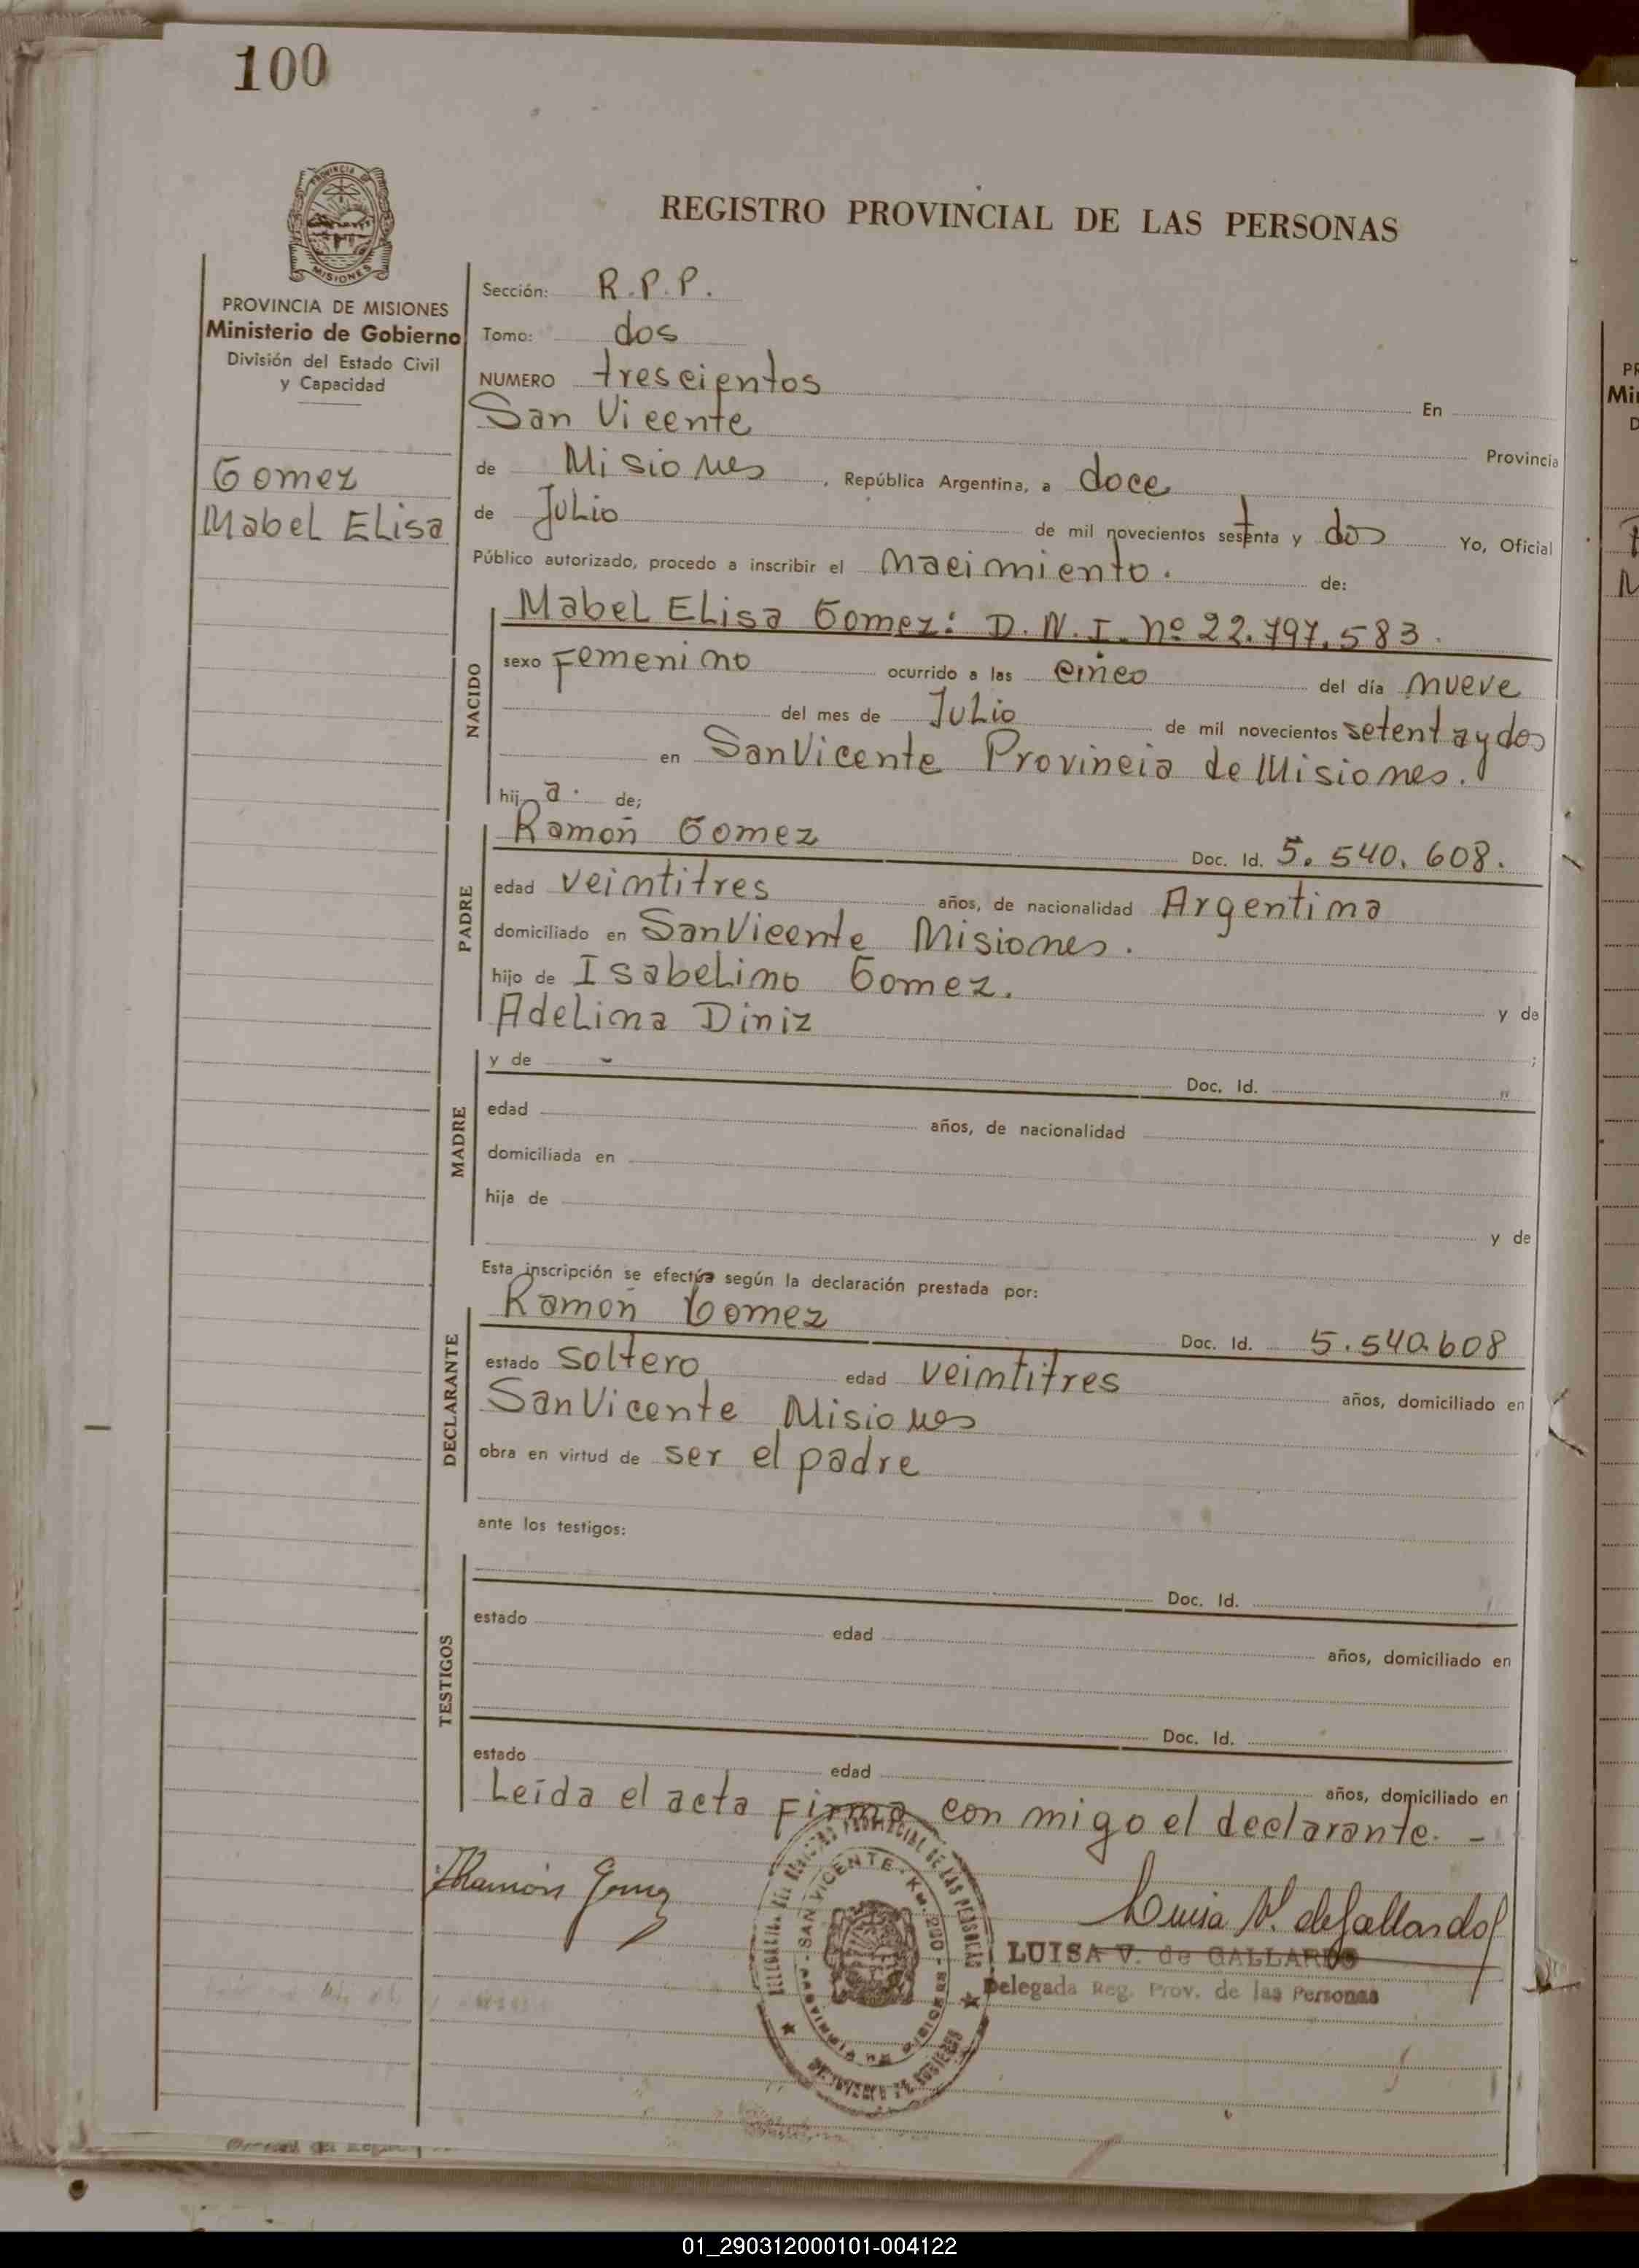 100
PROVINCIA DE
MISIONES
REGISTRO PROVINCIAL DE LAS PERSONAS
PROVINCIA DE MISIONES
Ministerio de Gobierno
División del Estado Civil
y Capacidad
Gomez
Mabel Elisa
Sección: R.P.P.
Tomo: dos
NUMERO trescientos En
San Vicente Provincia
de Misiones, República Argentina, a doce
de Julio de mil novecientos sesenta y dos Yo, Oficial
Público autorizado, procedo a inscribir el nacimiento. de:
NACIDO
Mabel Elisa Gomez: D.N.I. nº 22.797.583.
sexo Femenino ocurrido a las cinco del día nueve
del mes de Julio de mil novecientos setenta y dos
en San Vicente Provincia de Misiones.
hij a. de;
PADRE
Ramoñ Gomez Doc. Id. 5.540.608.
edad veintitres años, de nacionalidad Argentina
domiciliado en San Vicente Misiones.
hijo de Isabelino Gomez. y de
Adelina Diniz ;
MADRE
y de - Doc. Id. "
edad años, de nacionalidad
domiciliada en
hija de y de
Esta inscripción se efectúa según la declaración prestada por:
DECLARANTE
Ramoñ Gomez Doc. Id. 5.540.608
estado soltero edad veintitres años, domiciliado en
San Vicente Misiones
obra en virtud de ser el padre
ante los testigos:
TESTIGOS
Doc. Id.
estado edad años, domiciliado en
Doc. Id.
estado edad años, domiciliado en
Leída el acta firma con migo el declarante. -
Ramón Gomez
Luisa V. de Gallardo
LUISA V. de GALLARDO
Delegada Reg. Prov. de las Personas
PROVINCIAL DE LAS PERSONAS
SAN VICENTE - Km. - MISIONES
01_290312000101-004122